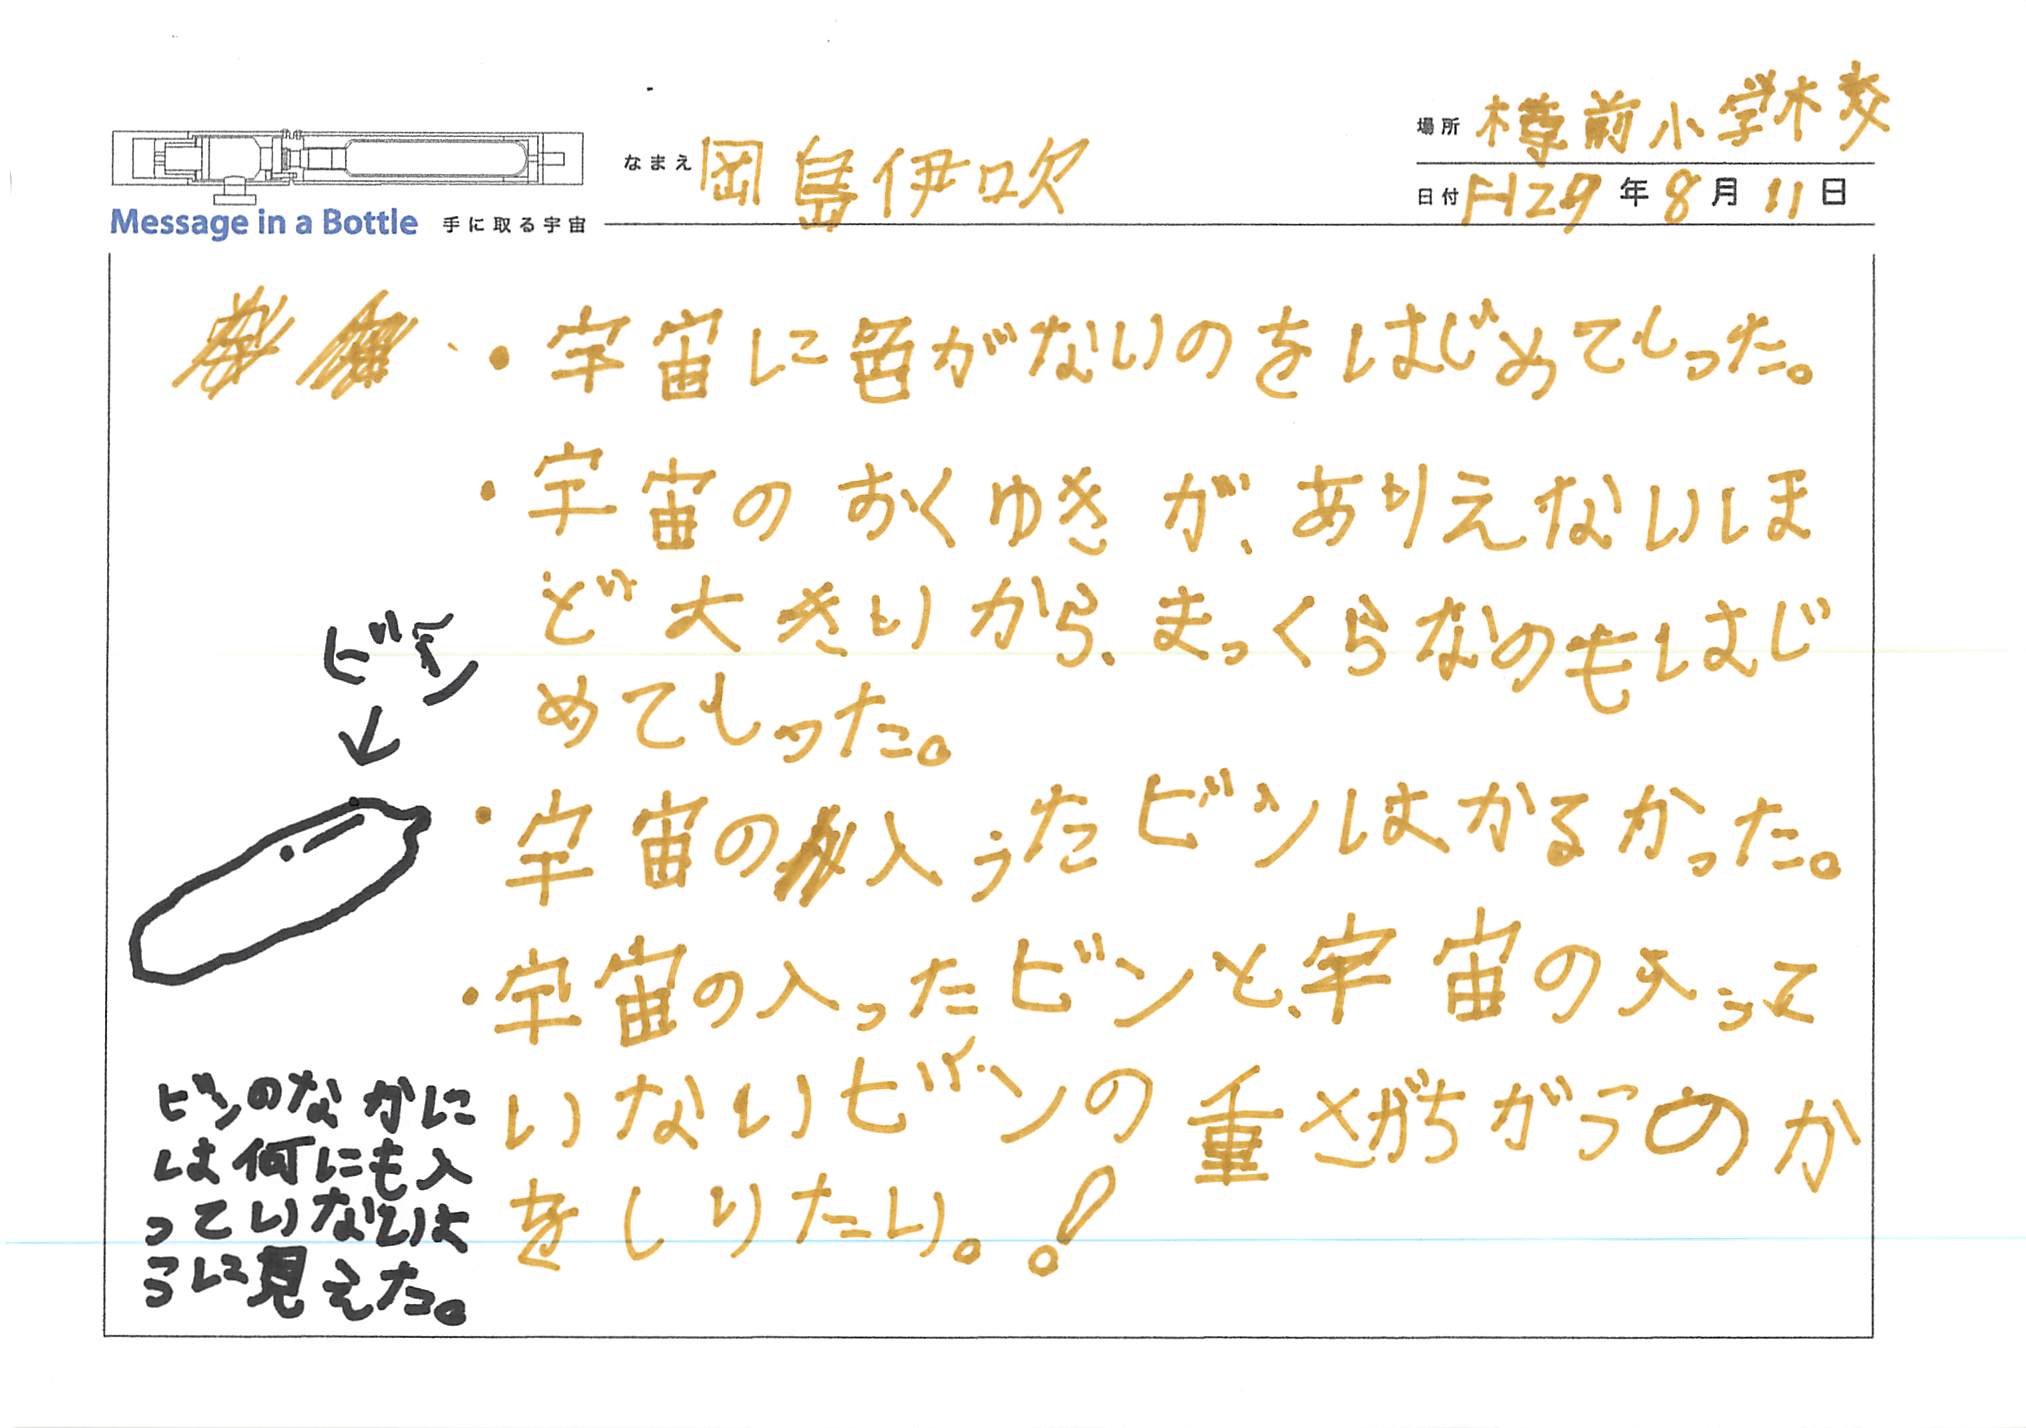 場所 樽前小学校
なまえ 岡島伊吹
日付 H29年8月11日
Message in a Bottle 手に取る宇宙
・宇宙に色がないのをはじめてしった。
・宇宙のおくゆきが、ありえないほ
ど大きいから、まっくらなのもはじ
めてしった。
・宇宙の入ったビンはかるかった。
・宇宙の入ったビンと、宇宙の入って
いないビンの重さがちがうのか
をしりたい。!
ビン
↓
ビンのなかに
は何にも入
っていないよ
うに見えた。